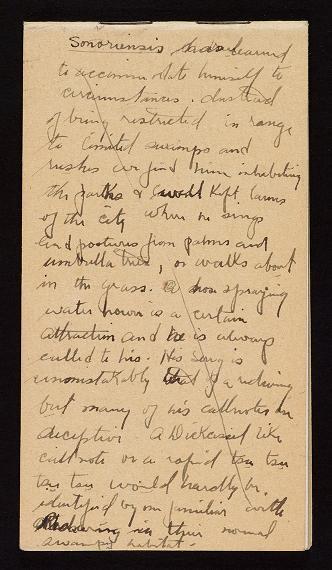 Sonoriensis has learned
to accommodate himself to
circumstances. Instead
of being restricted in range
to limited swamps and
rushes we find him inhabiting
the parks & well kept lawns
of the city where he sings
and postures from palms and
umbrella trees, or walks about
in the grass. A hose spraying
water is a certain
attraction and he is always
called to his. His song is
unmistakably that of a redwing
but many of his callnotes are
deceptive. A Dickcissel like
call note or a rapid tsu tsu
tsu tsu would hardly be
identified by one familiar with
Redwing in their normal
swampy habitat.